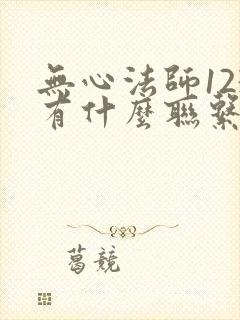 無心法師12
有什麼聯繫
葛競